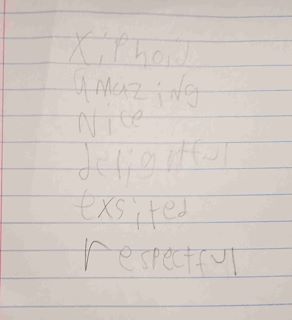 Xiphoid
amazing
Nice
delightful
exsited
respectful